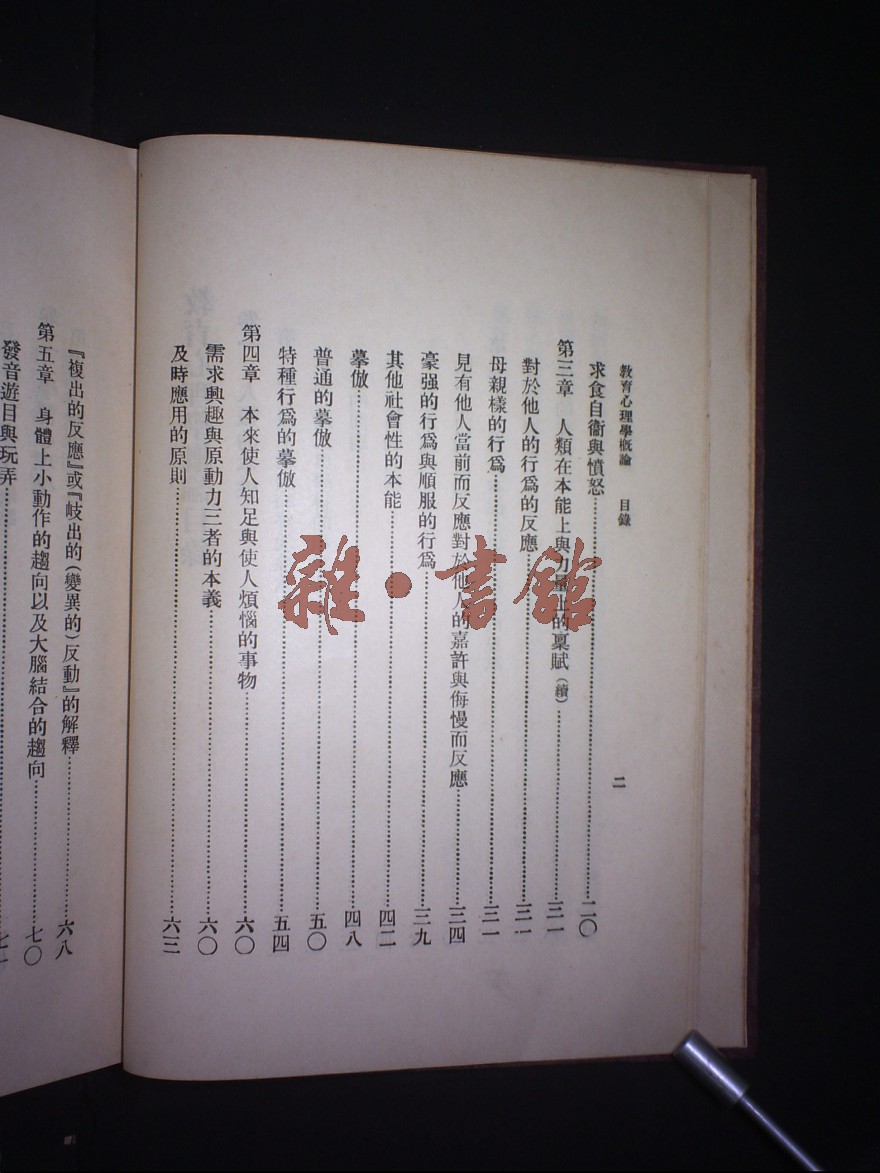 教育心理學概論 目錄 二
求食自衞與憤怒……二〇
第三章 人類在本能上與力量上的稟賦（續）……三一
對於他人的行爲的反應……三一
母親樣的行爲……三一
見有他人當前而反應對於他人的嘉許與侮慢而反應……三四
豪强的行爲與順服的行爲……三九
其他社會性的本能……四二
摹倣……四八
普通的摹倣……五〇
特種行爲的摹倣……五四
第四章 本來使人知足與使人煩惱的事物……六〇
需求興趣與原動力三者的本義……六〇
及時應用的原則……六三
『複出的反應』或『歧出的（變異的）反動』的解釋……六八
第五章 身體上小動作的趨向以及大腦結合的趨向……七〇
發音遊目與玩弄……七一
雜·書館